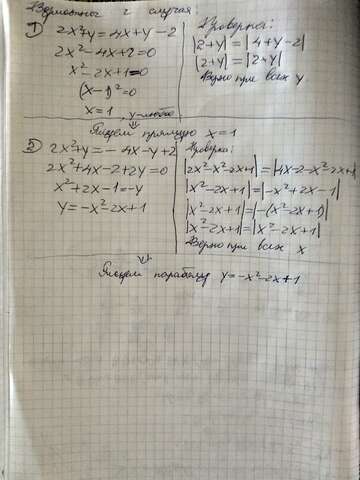 Возможны 2 случая:
1) 2x²+y=4x+y-2
2x²-4x+2=0
x²-2x+1=0
(x-1)²=0
x=1, y-любое.
Проверка:
|2+y|=|4+y-2|
|2+y|=|2+y|
Верно при всех y
⇓
Рисуем прямую x=1
2) 2x²+y=-4x-y+2
2x²+4x-2+2y=0
x²+2x-1=-y
y=-x²-2x+1
Проверка:
|2x²-x²-2x+1|=|4x-2-x²-2x+1|
|x²-2x+1|=|-x²+2x-1|
|x²-2x+1|=|-(x²-2x+1)|
|x²-2x+1|=|x²-2x+1|
Верно при всех x
⇓
Рисуем параболу y=-x²-2x+1